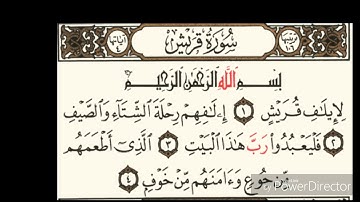 ترتيبها ١٠٦ سُورَةُ قُرَيْشٍ آياتها ٤
بِسْمِ اللَّهِ الرَّحْمَٰنِ الرَّحِيمِ
لِإِيلَٰفِ قُرَيْشٍ ١ إِۦلَٰفِهِمْ رِحْلَةَ ٱلشِّتَآءِ وَٱلصَّيْفِ
٢ فَلْيَعْبُدُوا۟ رَبَّ هَٰذَا ٱلْبَيْتِ ٣ ٱلَّذِىٓ أَطْعَمَهُم
مِّن جُوعٍ وَءَامَنَهُم مِّنْ خَوْفٍۭ ٤
PowerDirector